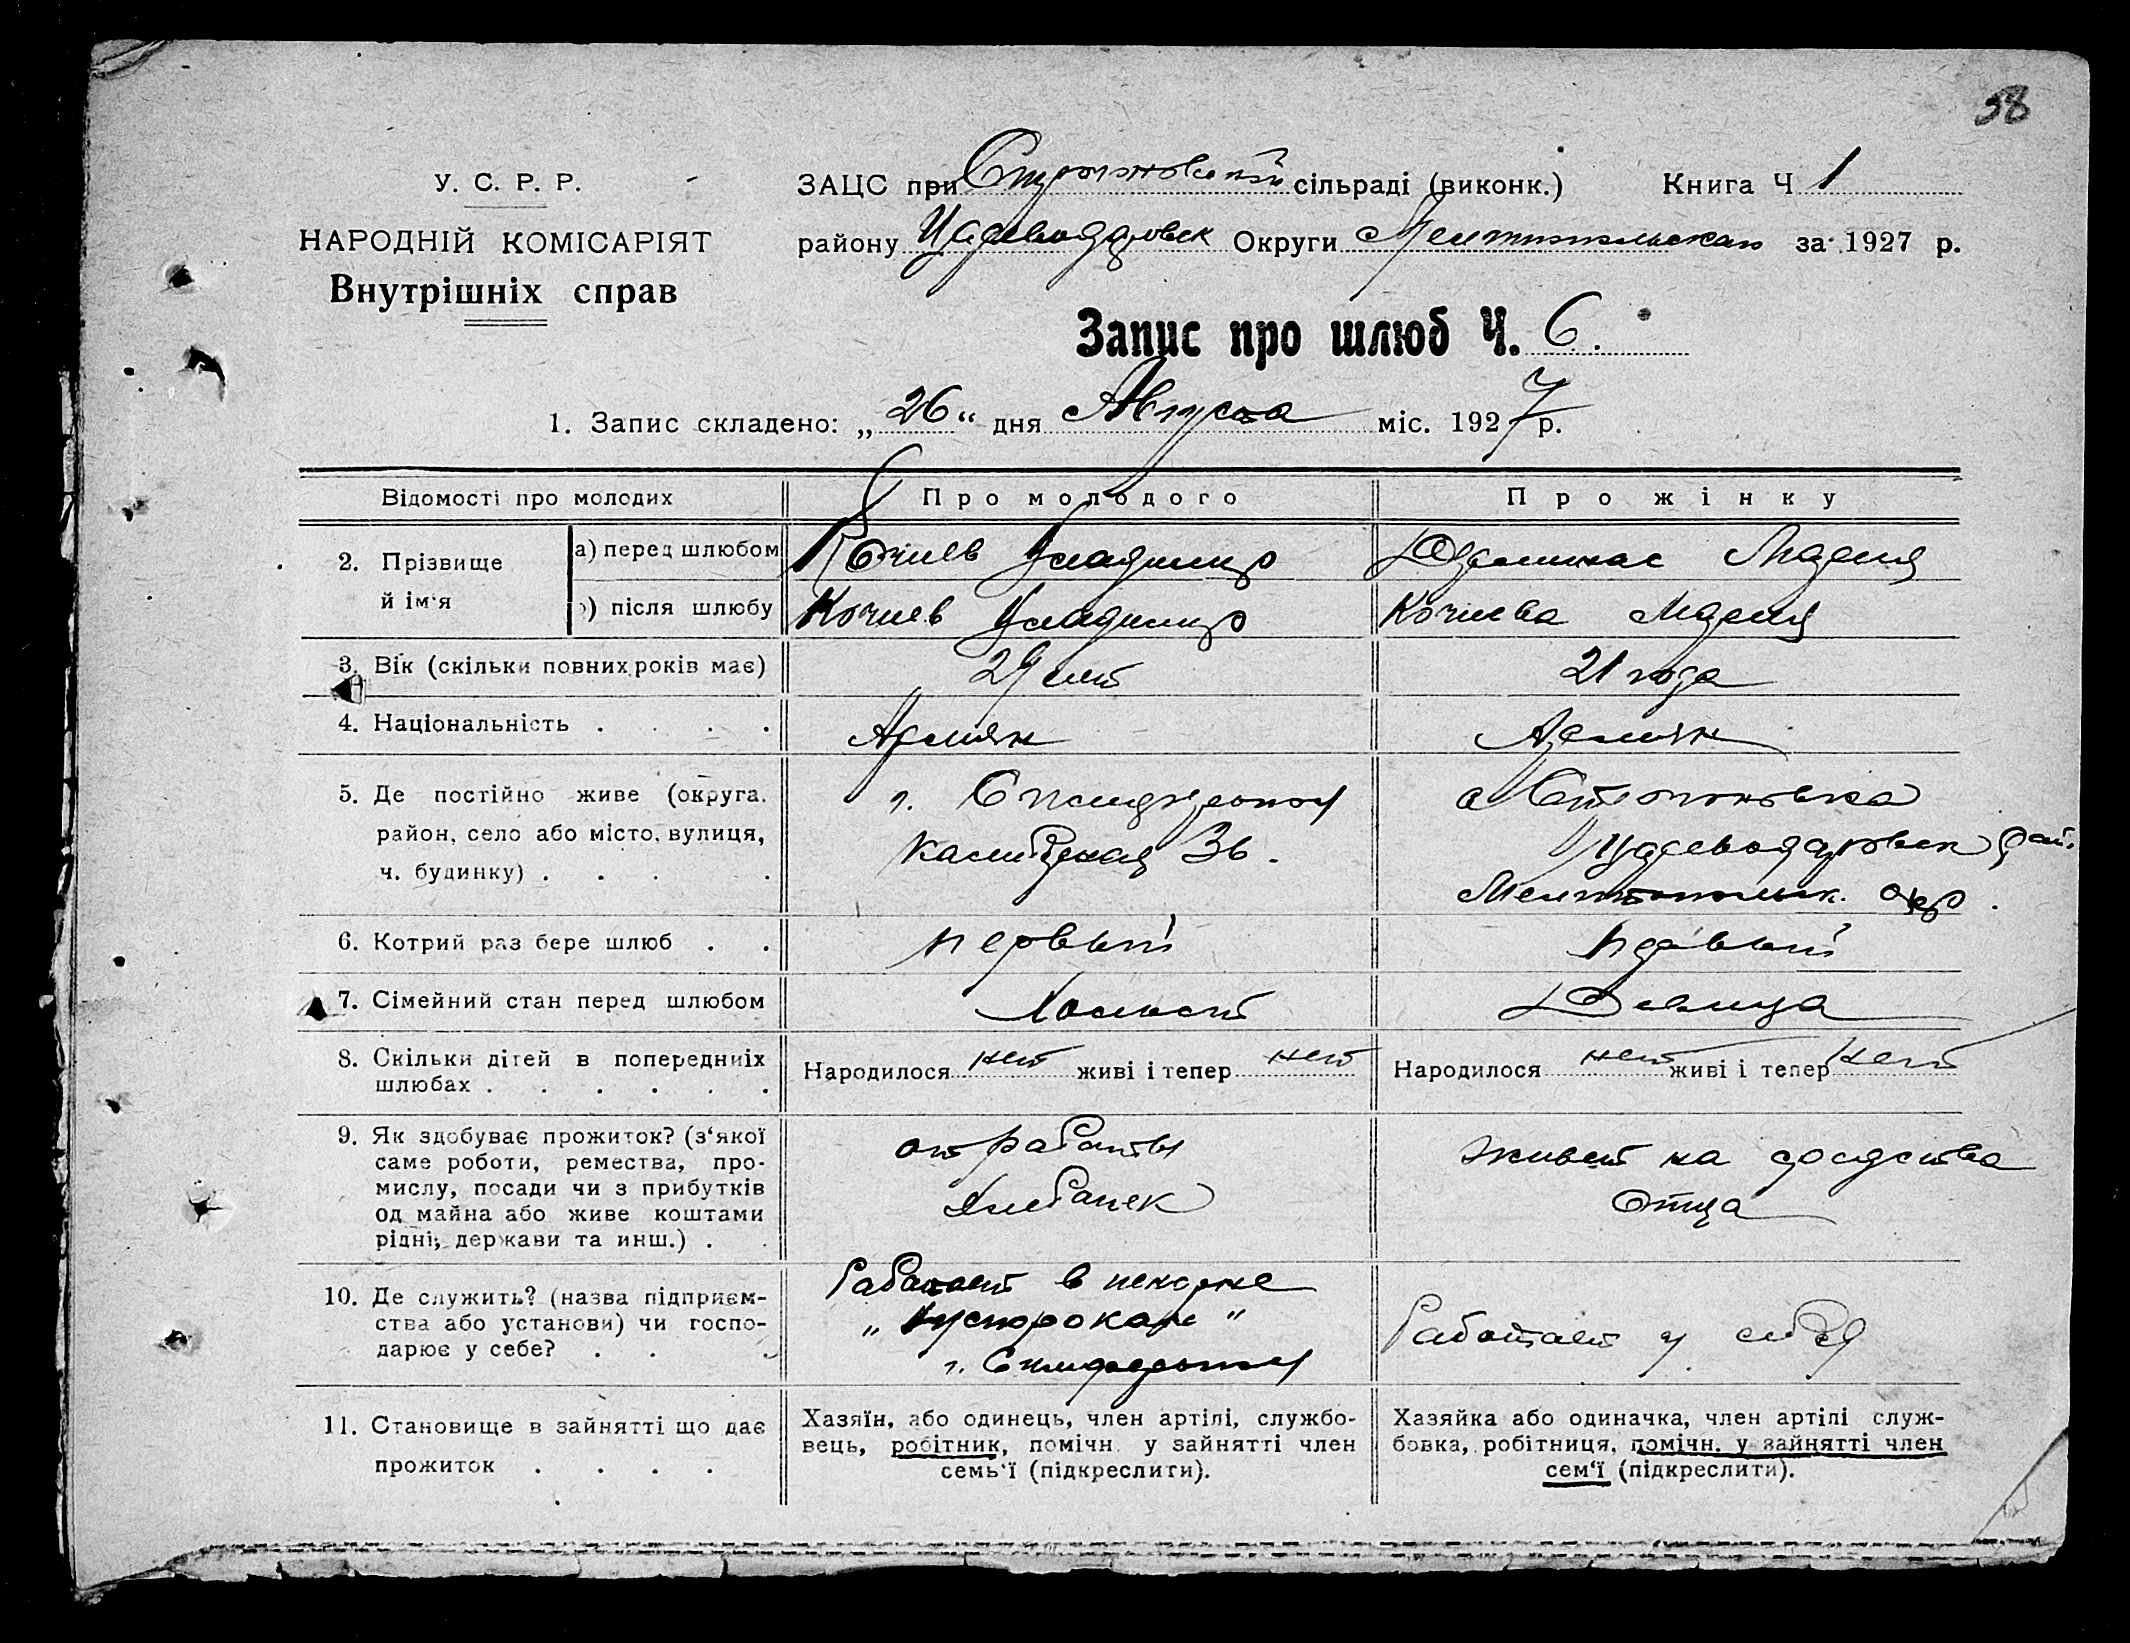 58
У. С. Р. Р.
НАРОДНІЙ КОМІСАРІЯТ
Внутрішніх справ
ЗАЦС при сільраді (виконк.) Книга Ч 1
району Округи за 1927 р.
Запис про шлюб Ч. 6.
1. Запис складено: „ 26 “ дня Августа міс. 1927 р.
Відомості про молодих Про молодого Про жінку
2. Прізвище й ім'я
а) перед шлюбом Кочиев Владимир Мария
б) після шлюбу Кочиев Владимир Кочиева Мария
3. Вік (скільки повних років має) лет 21 года
4. Національність . . . . Армян Армян
5. Де постійно живе (округа, г. Симферополь с.
район, село або місто, вулиця, рай.
ч. будинку) . . . . Мелитопольск. окр.
6. Котрий раз бере шлюб . . первый первый
7. Сімейний стан перед шлюбом Холост Девица
8. Скільки дітей в попередніх Народилося нет живі і тепер нет Народилося нет живі і тепер нет
шлюбах . . . . . .
9. Як здобуває прожиток? (з‘якої от работы живет на средства
саме роботи, ремества, про-
мислу, посади чи з прибутків Хлебопек Отца
од майна або живе коштами
рідні, держави та инш.) . .
10. Де служить? (назва підприєм- Работает в пекарне
ства або установи) чи госпо- Работает у себя
дарює у себе? . . . г. Симферополь
11. Становище в зайнятті що дає Хазяїн, або одинець, член артілі, службо- Хазяйка або одиначка, член артілі служ-
вець, робітник, помічн. у зайнятті член бовка, робітниця, помічн. у зайнятті член
прожиток . . . . семь‘ї (підкреслити). сем‘ї (підкреслити).